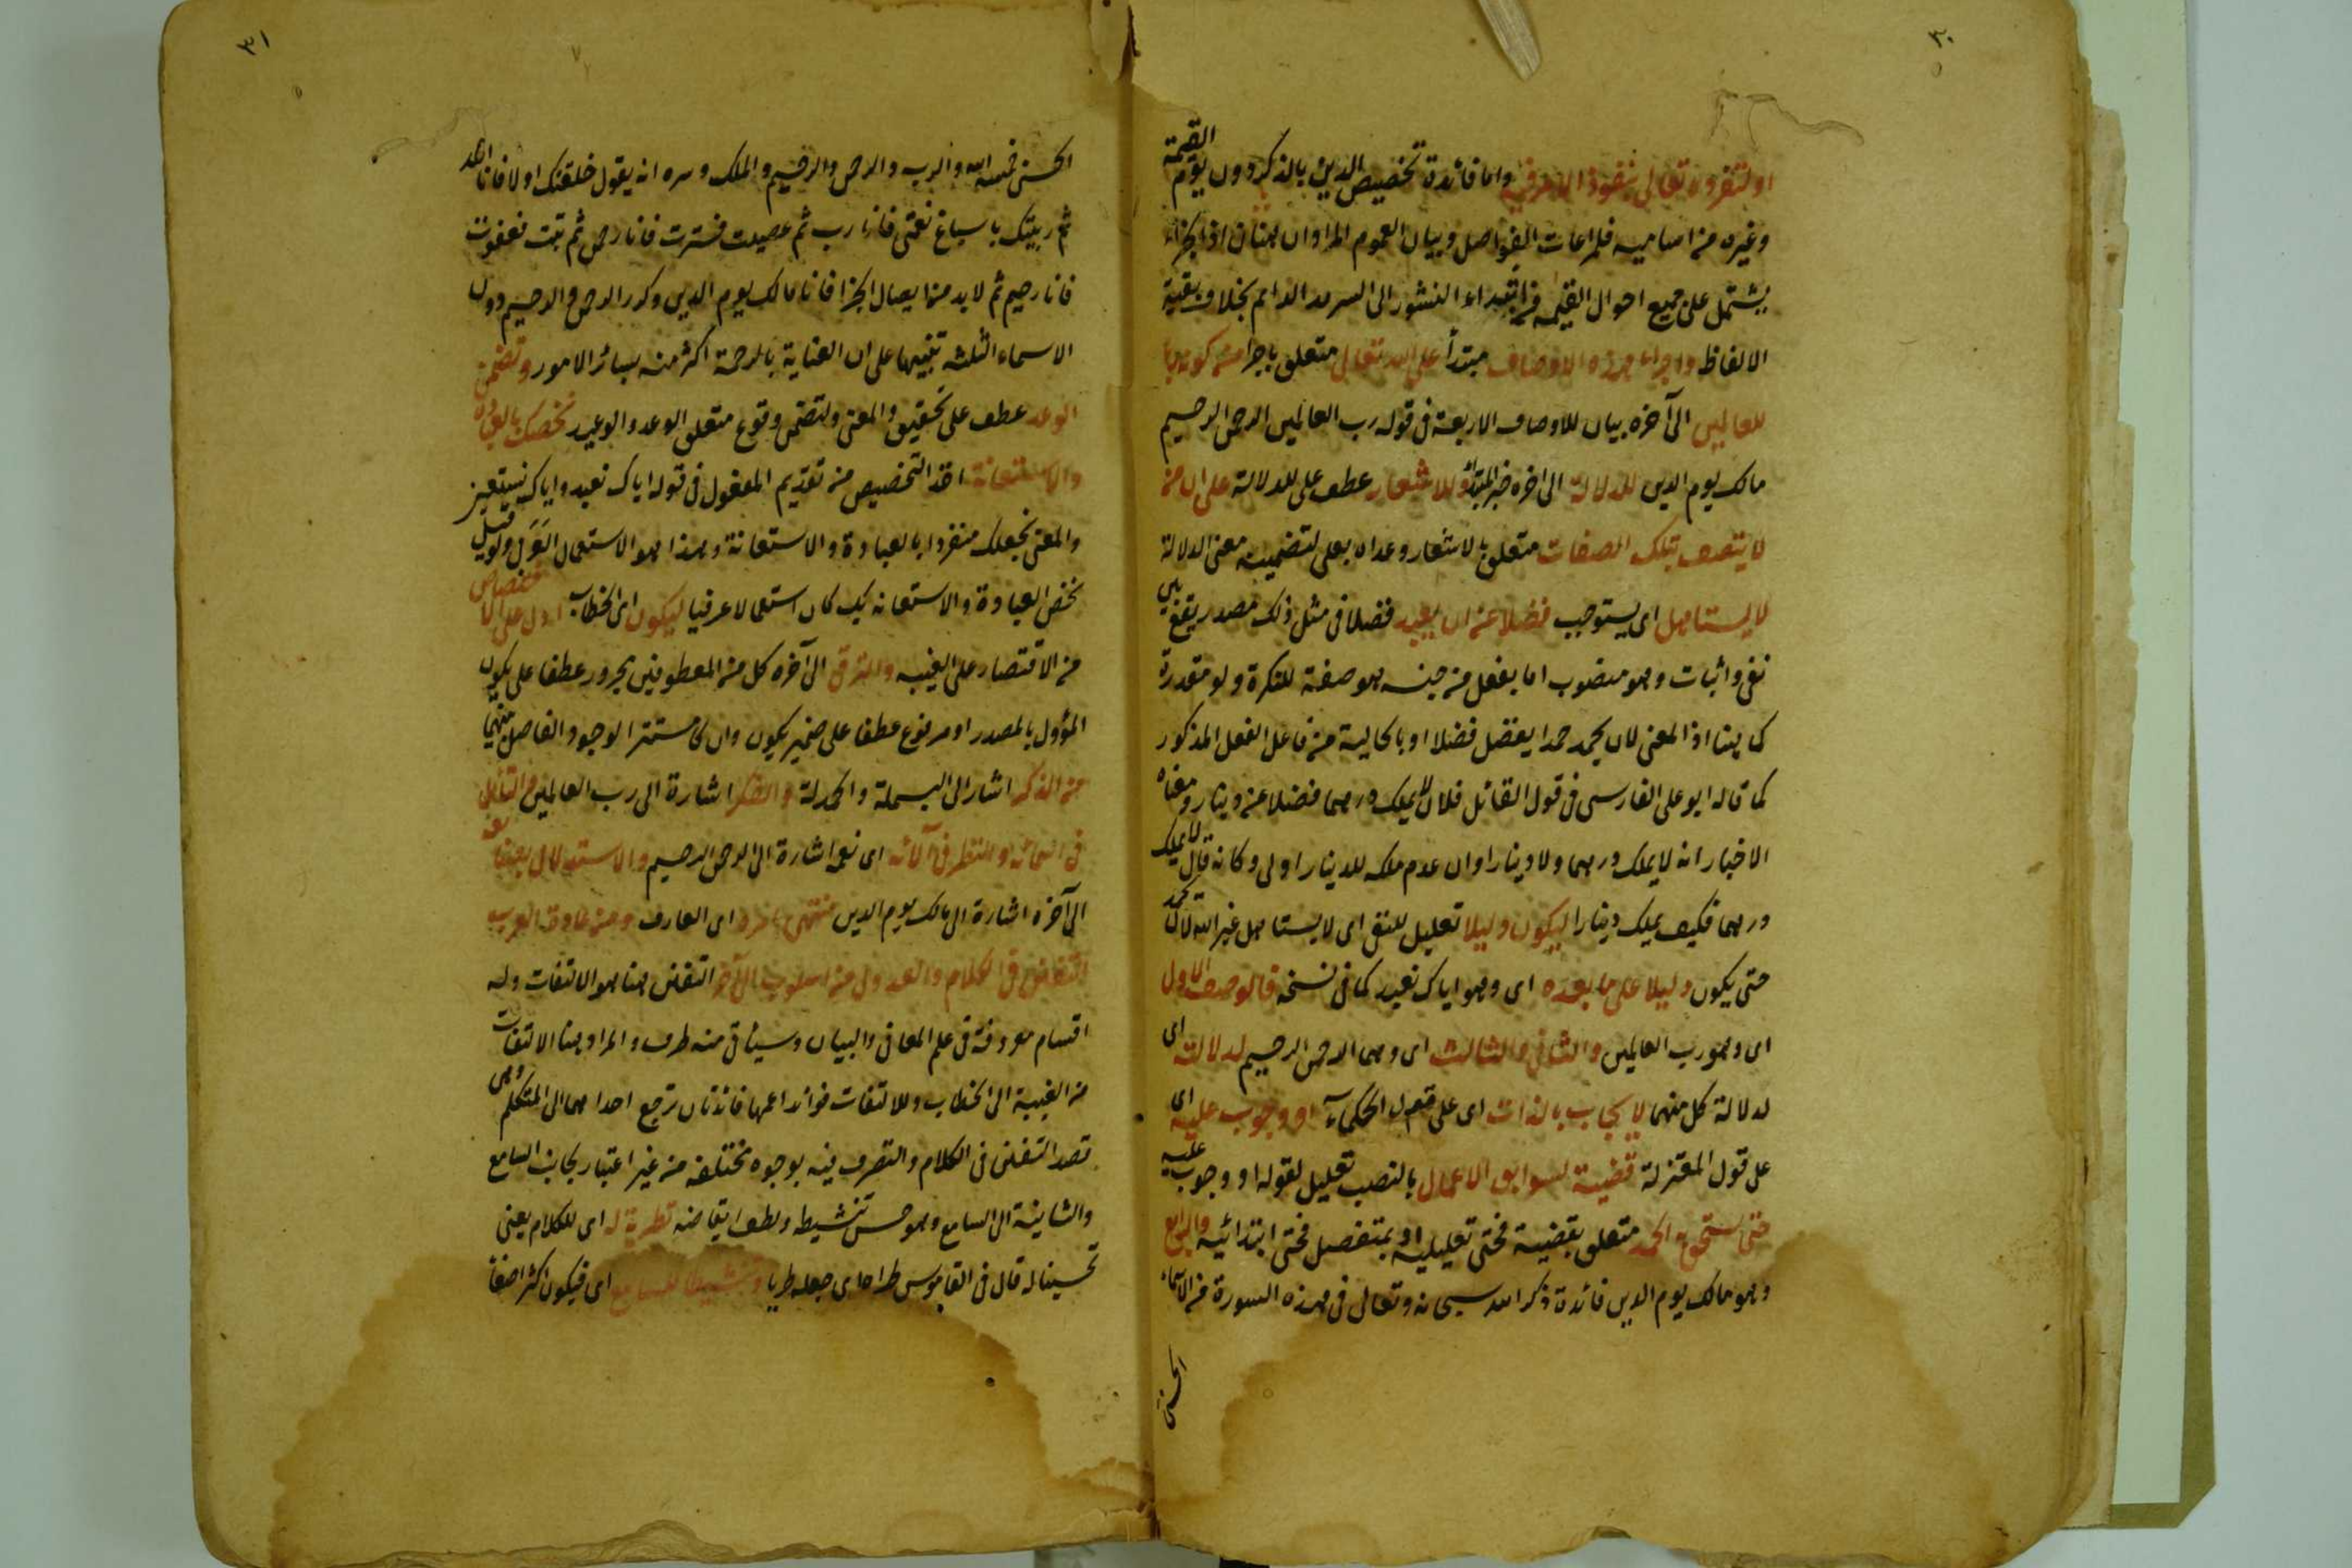 ٣٠
او لتفرده تعالى بنفوذ الامر فيه واما فائدة تخصيص الدين بالذكر دون يوم القيمة
وغيره من اساميه فلمراعات الفواصل وبيان العموم المراد ان هنا اذ الجزاء
يشتمل على جميع احوال القيمة من ابتداء النشور الى السرمد الدائم بخلاف بقية
الالفاظ واجراء هذه الاوصاف مبتدأ على الله تعالى متعلق باجرا من كونه ربا
للعالمين الى آخره بيان للاوصاف الاربعة فى قوله رب العالمين الرحمن الرحيم
مالك يوم الدين للدلالة الى اخره خبر المبتدأ وللاشعار عطف على للدلالة على ان من
لا يتصف بتلك الصفات متعلق بالاشعار وعداه بعلى لتضمينه معنى الدلالة
لا يستاهل اى يستوجب فضلا عن ان يعبد فضلا فى مثل ذلك مصدر يقع بين
نفى واثبات وهو منصوب اما بفعل من جنسه هو صفة للنكرة ولو مقدرة
كما هنا اذ المعنى لان يحمد حمدا يفضل فضلا او بالحالية من فاعل الفعل المذكور
كما قاله ابو على الفارسى فى قول القائل فلان لا يملك درهما فضلا عن دينار ومعناه
الاخبار انه لا يملك درهما ولا دينارا وان عدم ملكه للدينار اولى وكانه قال لا يملك
درهما فكيف يملك دينارا ليكون دليلا تعليل للنفى اى لا يستاهل غير الله لان يحمد
حتى يكون دليلا على ما بعده اى وهو اياك نعبد كما فى نسخه فالوصف الاول
اى وهو رب العالمين والثانى والثالث اى وهى الرحمن الرحيم لدلالت اى
لدلالة كل منهما لا يجاب بالذات اى على قول الحكماء او وجوب عليه اى
على قول المعتزلة قضية لسوابق الاعمال بالنصب تعليل لقوله او وجوب عليه
حتى يستحق به الحمد متعلق بقضية فحتى تعليلية او بمتفضل فحتى ابتدائيه والرابع
وهو مالك يوم الدين فائدة ذكر الله سبحانه وتعالى فى هذه السورة من الاسماء
الحسنى
٣١
الحسنى خمسة الله والرب والرحمن والرحيم والملك وسره انه يقول خلقتك اولا فانا الله
ثم ربيتك باسباغ نعمتى فانا رب ثم عصيت فسترت فانا رحمن ثم تبت فغفرت
فانا رحيم ثم لا بد من ايصال الجزا فانا مالك يوم الدين وكرر الرحمن والرحيم دون
الاسماء الثلثه تنبيها على ان العناية بالرحمة اكثر منه بسائر الامور وتضمن
الوعد عطف على تحقيق والمعنى ولتضمن وقوع متعلق الوعد والوعيد نخصك بالعبادة
والاستعانة اخذ التخصيص من تقديم المفعول فى قوله اياك نعبد واياك نستعين
والمعنى نجعلك منفردا بالعبادة والاستعانة وهذا هو الاستعمال ولو قيل
نخص العبادة والاستعانه بك كان استعمالا عرفيا ليكون اى الخطاب ادل على الاختصاص
من الاقتصار على الغيبه والترقى الى آخره كل من المعطوفين مجرور عطفا على يكون
المؤول بالمصدر او مرفوع عطفا على ضمير يكون وان كان مستترا لوجود الفاصل بينهما
من الذكر اشار الى البسملة والحمدلة والفكر اشارة الى رب العالمين والتأمل
فى اسمائه والنظر فى آلائه اى نعمه اشارة الى الرحمن الرحيم والاستدلال بصنائعه
الى آخره اشارة الى مالك يوم الدين منتهى امره اى العارف ومن عادة العرب
التفنن فى الكلام والعدول من اسلوب الى آخر التفنن هنا هو الالتفات وله
اقسام معروفة فى علم المعانى والبيان وسيأتى منه طرف والمراد هنا الالتفات
من الغيبة الى الخطاب وللالتفات فوائد اعمها فائدتان ترجع احداهما الى المتكلم وهى
قصد التفنن فى الكلام والتصرف فيه بوجوه مختلفه من غير اعتبار لجانب السامع
والثانية الى السامع وهو حسن تنشيطه ولطف ايقاظه تطرية له اى للكلام يعنى
تحسينا له قال فى القاموس طراه اى جعله طريا وتنشيطا للسامع اى فيكون اكثر اصغاء